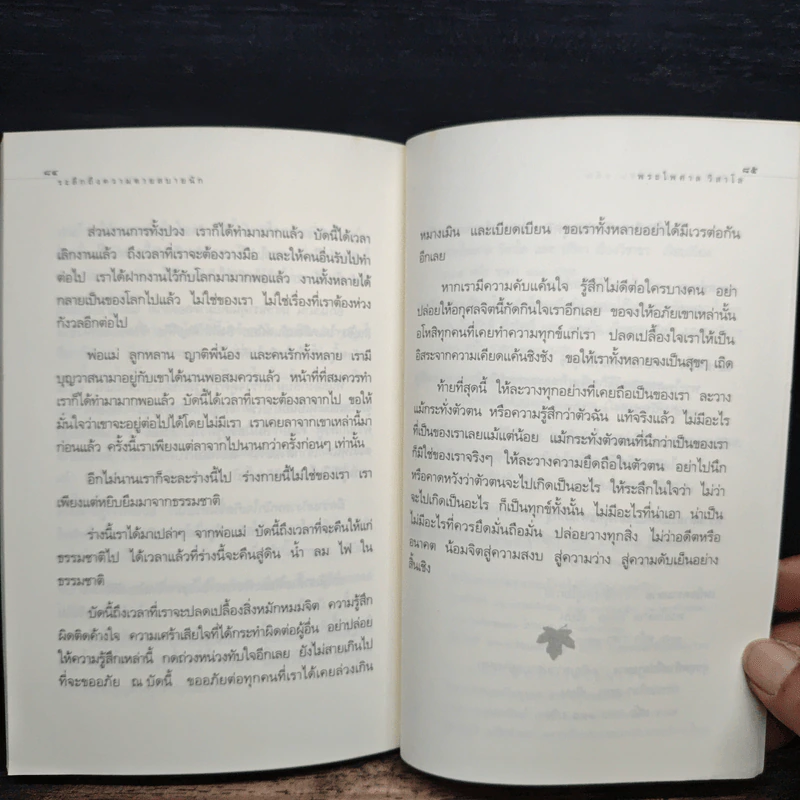 ๘๔
ระลึกถึงความตายสบายนัก
ส่วนงานการทั้งปวง เราก็ได้ทำมามากแล้ว บัดนี้ได้เวลา
เลิกงานแล้ว ถึงเวลาที่เราจะต้องวางมือ และให้คนอื่นรับไปทำ
ต่อไป เราได้ฝากงานไว้กับโลกมามากพอแล้ว งานทั้งหลายได้
กลายเป็นของโลกไปแล้ว ไม่ใช่ของเรา ไม่ใช่เรื่องที่เราต้องห่วง
กังวลอีกต่อไป
พ่อแม่ ลูกหลาน ญาติพี่น้อง และคนรักทั้งหลาย เรามี
บุญวาสนามาอยู่กับเขาได้นานพอสมควรแล้ว หน้าที่ที่สมควรทำ
เราก็ได้ทำมามากพอแล้ว บัดนี้ได้เวลาที่เราจะต้องลาจากไป ขอให้
มั่นใจว่าเขาจะอยู่ต่อไปได้โดยไม่มีเรา เราเคยลาจากเขาเหล่านี้มา
ก่อนแล้ว ครั้งนี้เราเพียงแต่ลาจากไปนานกว่าครั้งก่อนๆ เท่านั้น
อีกไม่นานเราก็จะละร่างนี้ไป ร่างกายนี้ไม่ใช่ของเรา เรา
เพียงแต่หยิบยืมมาจากธรรมชาติ
ร่างนี้เราได้มาเปล่าๆ จากพ่อแม่ บัดนี้ถึงเวลาที่จะคืนให้แก่
ธรรมชาติไป ได้เวลาแล้วที่ร่างนี้จะคืนสู่ดิน น้ำ ลม ไฟ ใน
ธรรมชาติ
บัดนี้ถึงเวลาที่เราจะปลดเปลื้องสิ่งหมักหมมจิต ความรู้สึก
ผิดติดค้างใจ ความเศร้าเสียใจที่ได้กระทำผิดต่อผู้อื่น อย่าปล่อย
ให้ความรู้สึกเหล่านี้ กดถ่วงหน่วงทับใจอีกเลย ยังไม่สายเกินไป
ที่จะขออภัย ณ บัดนี้ ขออภัยต่อทุกคนที่เราได้เคยล่วงเกิน
๘๕
พระไพศาล วิสาโล
หมางเมิน และเบียดเบียน ขอเราทั้งหลายอย่าได้มีเวรต่อกัน
อีกเลย
หากเรามีความคับแค้นใจ รู้สึกไม่ดีต่อใครบางคน อย่า
ปล่อยให้อกุศลจิตนี้กัดกินใจเราอีกเลย ขอจงให้อภัยเขาเหล่านั้น
อโหสิทุกคนที่เคยทำความทุกข์แก่เรา ปลดเปลื้องใจเราให้เป็น
อิสระจากความเคียดแค้นชิงชัง ขอให้เราทั้งหลายจงเป็นสุขๆ เถิด
ท้ายที่สุดนี้ ให้ละวางทุกอย่างที่เคยถือเป็นของเรา ละวาง
แม้กระทั่งตัวตน หรือความรู้สึกว่าตัวฉัน แท้จริงแล้ว ไม่มีอะไร
ที่เป็นของเราเลยแม้แต่น้อย แม้กระทั่งตัวตนที่นึกว่าเป็นของเรา
ก็มิใช่ของเราจริงๆ ให้ละวางความยึดถือในตัวตน อย่าไปนึก
หรือคาดหวังว่าตัวตนจะไปเกิดเป็นอะไร ให้ระลึกในใจว่า ไม่ว่า
จะไปเกิดเป็นอะไร ก็เป็นทุกข์ทั้งนั้น ไม่มีอะไรที่น่าเอา น่าเป็น
ไม่มีอะไรที่ควรยึดมั่นถือมั่น ปล่อยวางทุกสิ่ง ไม่ว่าอดีตหรือ
อนาคต น้อมจิตสู่ความสงบ สู่ความว่าง สู่ความดับเย็นอย่าง
สิ้นเชิง